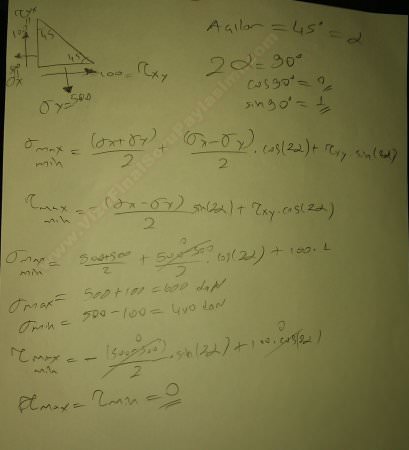 τyx
100
45
45
100 = τxy
σx
σy=500
Açılar = 45° = α
2α = 90°
cos90° = 0
sin90° = 1
σmax min = (σx+σy)/2 + (σx-σy)/2 . cos(2α) + τxy . sin(2α)
τmax min = -(σx-σy)/2 sin(2α) + τxy . cos(2α)
σmax min = 500+500/2 + 500-500/2 . cos(2α) + 100.1
σmax = 500+100 = 600 daN
σmin = 500-100 = 400 daN
τmax min = -(500-500)/2 . sin(2α) + 100.cos(2α)
τmax = τmin = 0